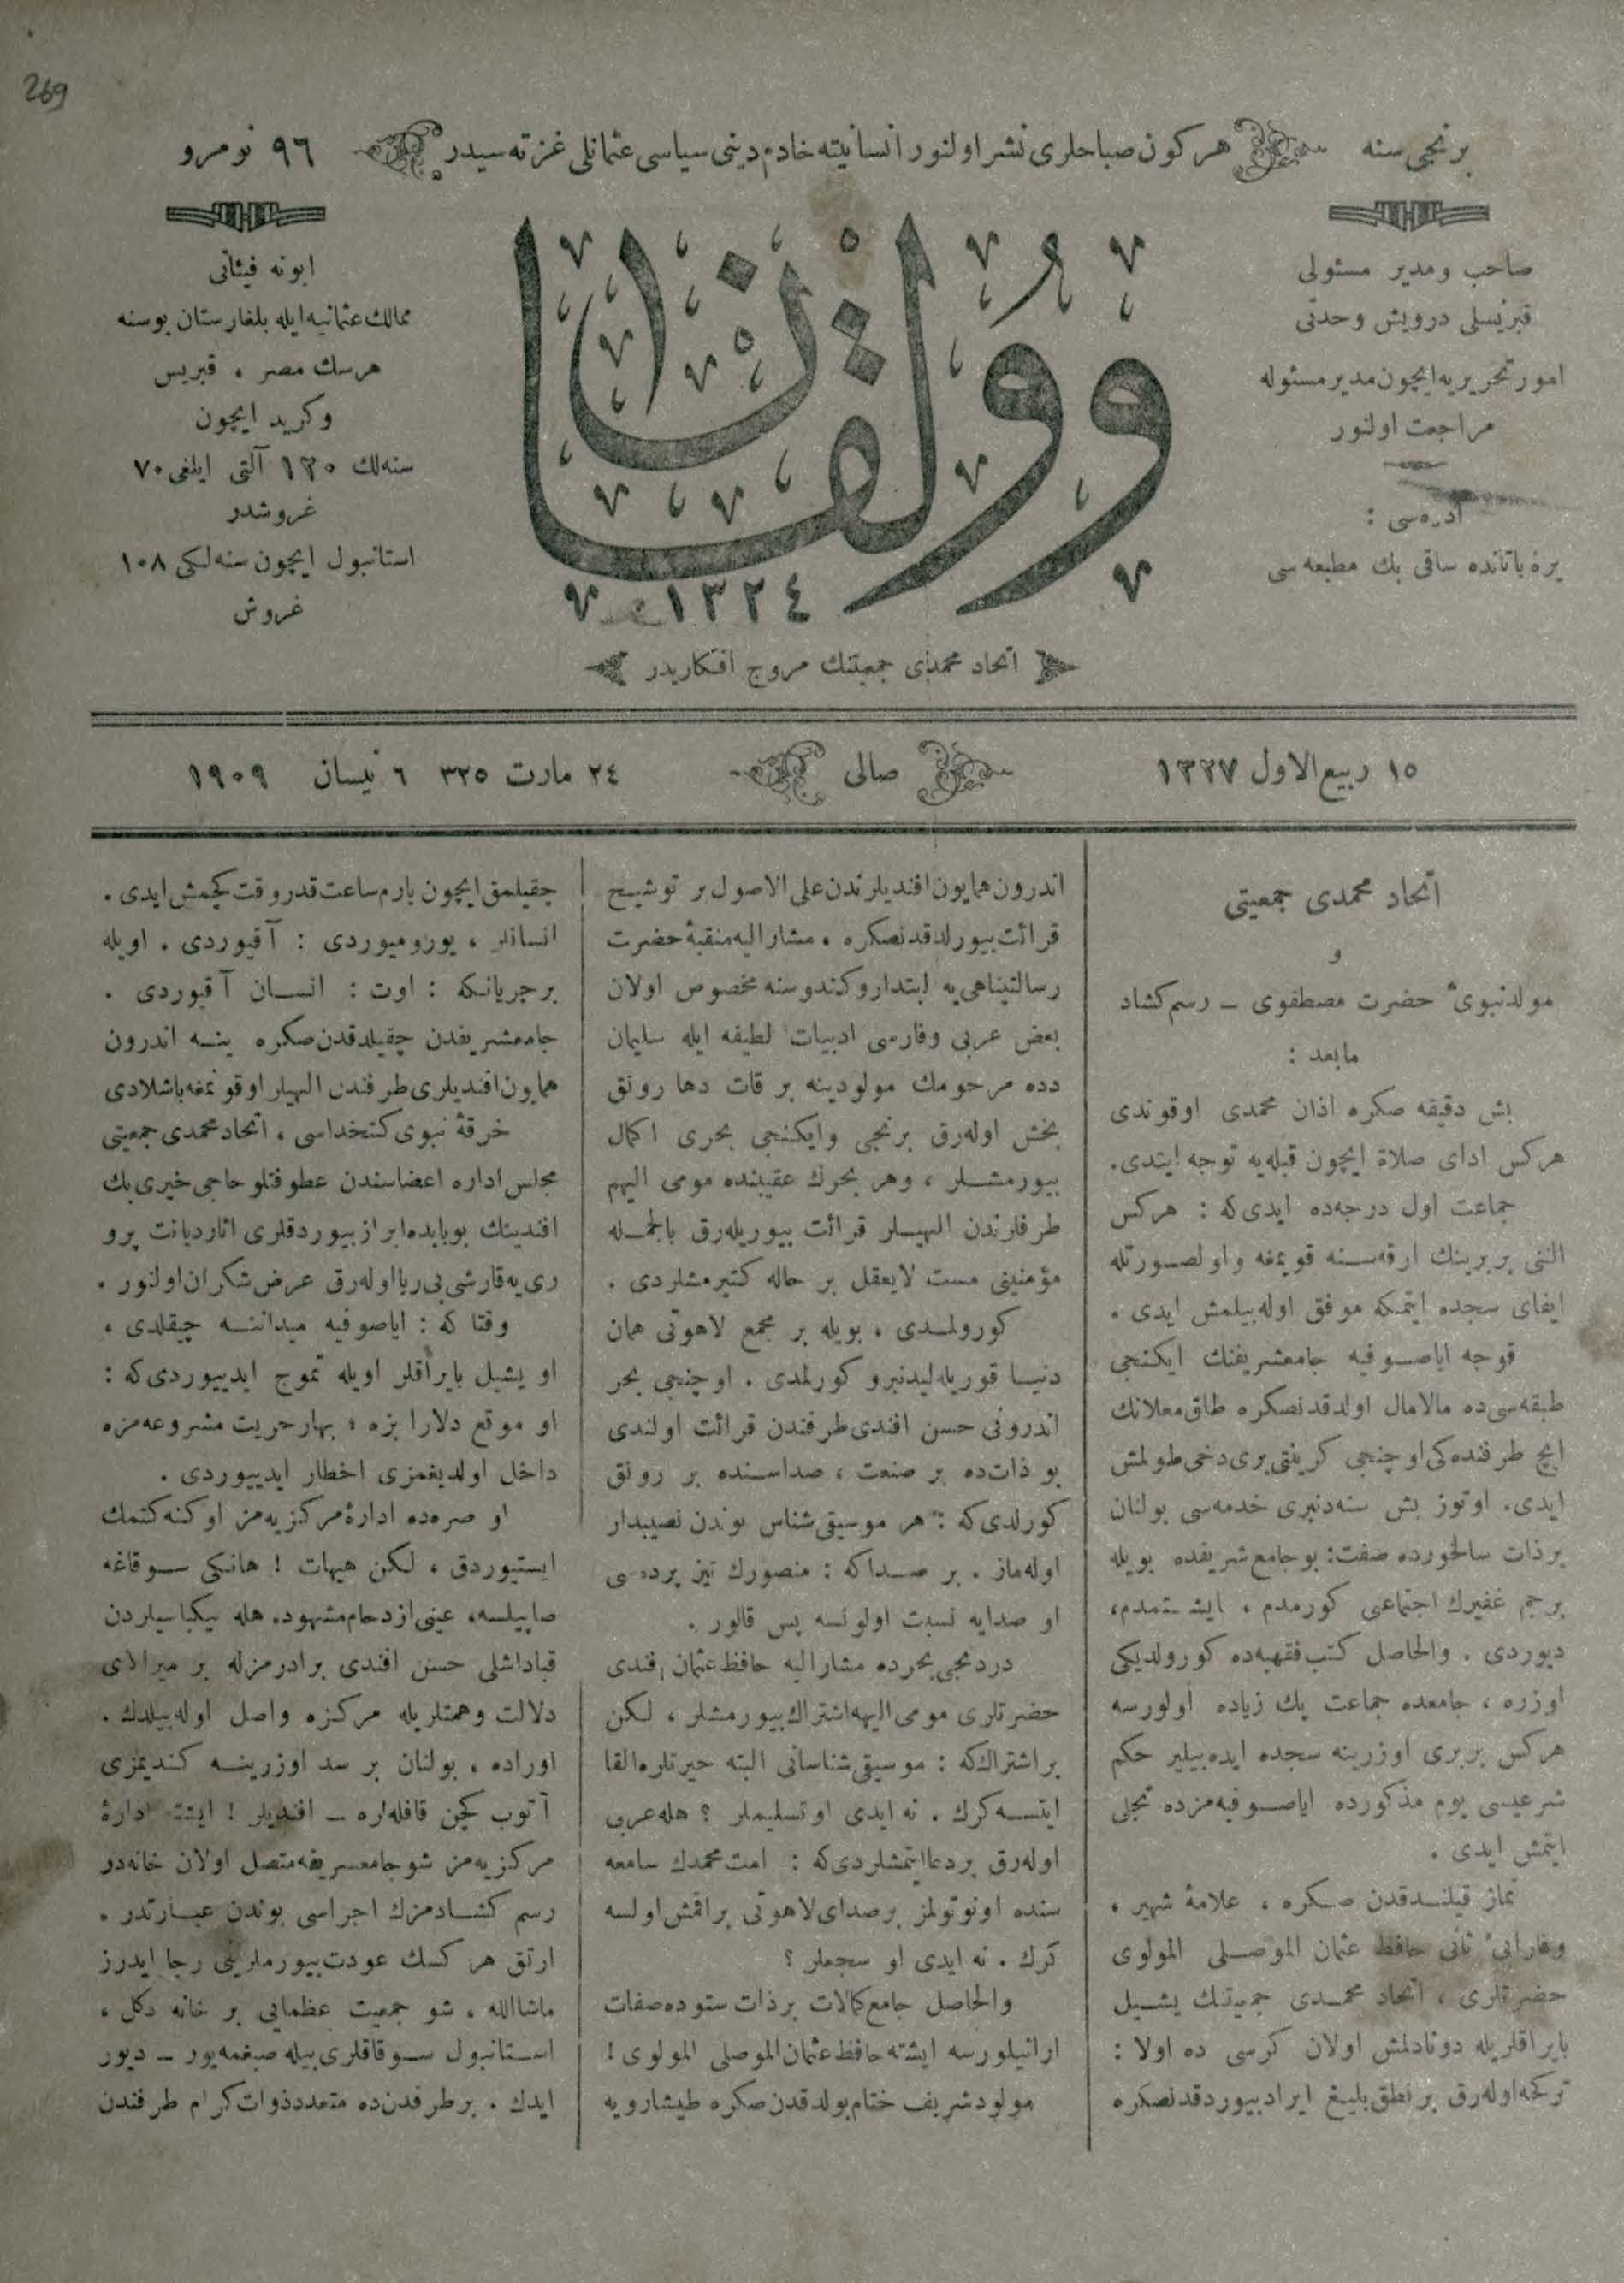 269
برنجی سنه
هر کون صباحلری نشر اولنور انسانیته خادم دینی سیاسی عثمانلی غزته سیدر
٩٦ نومرو
صاحب ومدیر مسئولی
قبریسلی درویش وحدتی
امور تحریریه ایچون مدیر مسئوله
مراجعت اولنور
یره باتانده ساقی بك مطبعه سی
وولقان
١٣٢٤
اتحاد محمدی جمعیتنك مروج افکاریدر
ابونه فیئاتی
ممالك عثمانیه ایله بلغارستان بوسنه
هرسك مصر ، قبریس
وکرید ایچون
سنه لك ١٢٠ آلتی ایلغی ٧٠
غروشدر
استانبول ایچون سنه لکی ١٠٨
غروش
١٥ ربیع الاول ١٣٢٧
صالی
٢٤ مارت ٣٢٥ ٦ نیسان ١٩٠٩
اتحاد محمدی جمعیتی
و
مولد نبویء حضرت مصطفوی ــ رسم کشاد
مابعد :
بش دقیقه صکره اذان محمدی اوقوندی
هرکس ادای صلاة ایچون قبله یه توجه ایتدی.
جماعت اول درجه ده ایدی که : هرکس
النی بربرینك ارقه سنه قویمغه واولصورتله
ایفای سجده ایتمکه موفق اوله بیلمش ایدی .
قوجه ایاصوفیه جامعشریفنك ایکنجی
طبقه سی ده مالامال اولدقدنصکره طاق معلانك
ایچ طرفنده کی اوچنجی کریفتی یری دخی طولمش
ایدی. اوتوز بش سنه دنبری خدمه سی بولنان
بر ذات سالخورده صفت: بوجامع شریفده بویله
برجم غفیرك اجتماعی کورمدم ، ایشتمدم،
دیوردی . والحاصل کتب فقهیه ده کورولدیکی
اوزره ، جامعده جماعت پك زیاده اولورسه
هرکس بربری اوزرینه سجده ایده بیلیر حکم
شرعیسی یوم مذکورده ایاصوفیه مزده تجلی
ایتمش ایدی .
نماز قیلندقدن صکره ، علامۀ شهیر ،
وفارابیء ثانی حافظ عثمان الموصلی المولوی
حضرتلری ، اتحاد محمدی جمعیتنك یشیل
بایراقلریله دونادلمش اولان کرسی ده اولا :
ترکجه اوله رق بر نطق بلیغ ایراد بیوردقدنصکره
اندرون همایون افندیلرندن علی الاصول بر توشیح
قرائت بیورلدقدنصکره ، مشارالیه منقبۀ حضرت
رسالتپناهی یه ابتدار وکندوسنه مخصوص اولان
بعض عربی وفارسی ادبیات لطیفه ایله سلیمان
دده مرحومك مولودینه بر قات دها رونق
بخش اوله رق برنجی وایکنجی بحری اکمال
بیورمشلر ، وهر بحرك عقیبنده مومی الیهم
طرفلرندن الهیلر قرائت بیوریله رق بالجمله
مؤمنینی مست لایعقل بر حاله کتیرمشلردی .
کورولمدی ، بویله بر مجمع لاهوتی همان
دنیا قوریله لیدنبرو کورلمدی . اوچنجی بحر
اندرونی حسن افندی طرفندن قرائت اولندی
بو ذات ده بر صنعت ، صداسنده بر رونق
کورلدی که : هر موسیقی شناس بوندن نصیبدار
اوله ماز . بر صدا که : منصورك تیز پرده سی
او صدایه نسبت اولونسه پس قالور .
دردنجی بحرده مشارالیه حافظ عثمان افندی
حضرتلری مومی الیهه اشتراك بیورمشلر ، لکن
بر اشتراك که : موسیقی شناسانی البته حیرتلره القا
ایتسه کرك . نه ایدی او تسلیملر ؟ هله عربی
اوله رق بر دعا ایتمشلردی که : امت محمدك سامعه
سنده اونوتولمز بر صدای لاهوتی براقمش اولسه
کرك . نه ایدی او سجعلر ؟
والحاصل جامع کمالات بر ذات ستوده صفات
ارانیلورسه ایشته حافظ عثمان الموصلی المولوی !
مولود شریف ختام بولدقدن صکره طیشارویه
چقیلمق ایچون یارم ساعت قدر وقت کچمش ایدی .
انسانلر ، یورومیوردی : آقیوردی . اویله
بر جریانکه : اوت : انسان آقیوردی .
جامعشریفدن چقیلدقدن صکره ینه اندرون
همایون افندیلری طرفندن الهیلر اوقونمغه باشلادی
خرقۀ نبوی کتخداسی ، اتحاد محمدی جمعیتی
مجلس اداره اعضاسندن عطوفتلو حاجی خیری بك
افندینك بوبابده ابراز بیوردقلری اثار دیانت پرو
ری یه قارشی بی ریا اوله رق عرض شکران اولنور .
وقتا که : ایاصوفیه میداننه چیقلدی ،
او یشیل بایراقلر اویله تموج ایدییوردی که :
او موقع دلارا بزه ؛ بهار حریت مشروعه مزه
داخل اولدیغمزی اخطار ایدییوردی .
او صره ده ادارۀ مرکزیه مز اوکنه کتمك
ایستیوردق ، لکن هیهات ! هانکی سوقاغه
صاپیلسه، عینی ازدحام مشهود. هله بیکباسیلردن
قباداشلی حسن افندی برادرمزله بر میرالای
دلالت وهمتلریله مرکزه واصل اوله بیلدك .
اوراده ، بولنان بر سد اوزرینه کندیمزی
آتوب کچن قافله لره ــ افندیلر ! ایشته ادارۀ
مرکزیه مز شو جامعشریفه متصل اولان خانه در
رسم کشادمزك اجراسی بوندن عبارتدر .
ارتق هر کسك عودت بیورملرینی رجا ایدرز
ماشاالله ، شو جمعیت عظمایی بر خانه دکل ،
استانبول سوقاقلری بیله صیغمه یور ــ دیور
ایدك . بر طرفدن ده متعدد ذوات کرام طرفندن